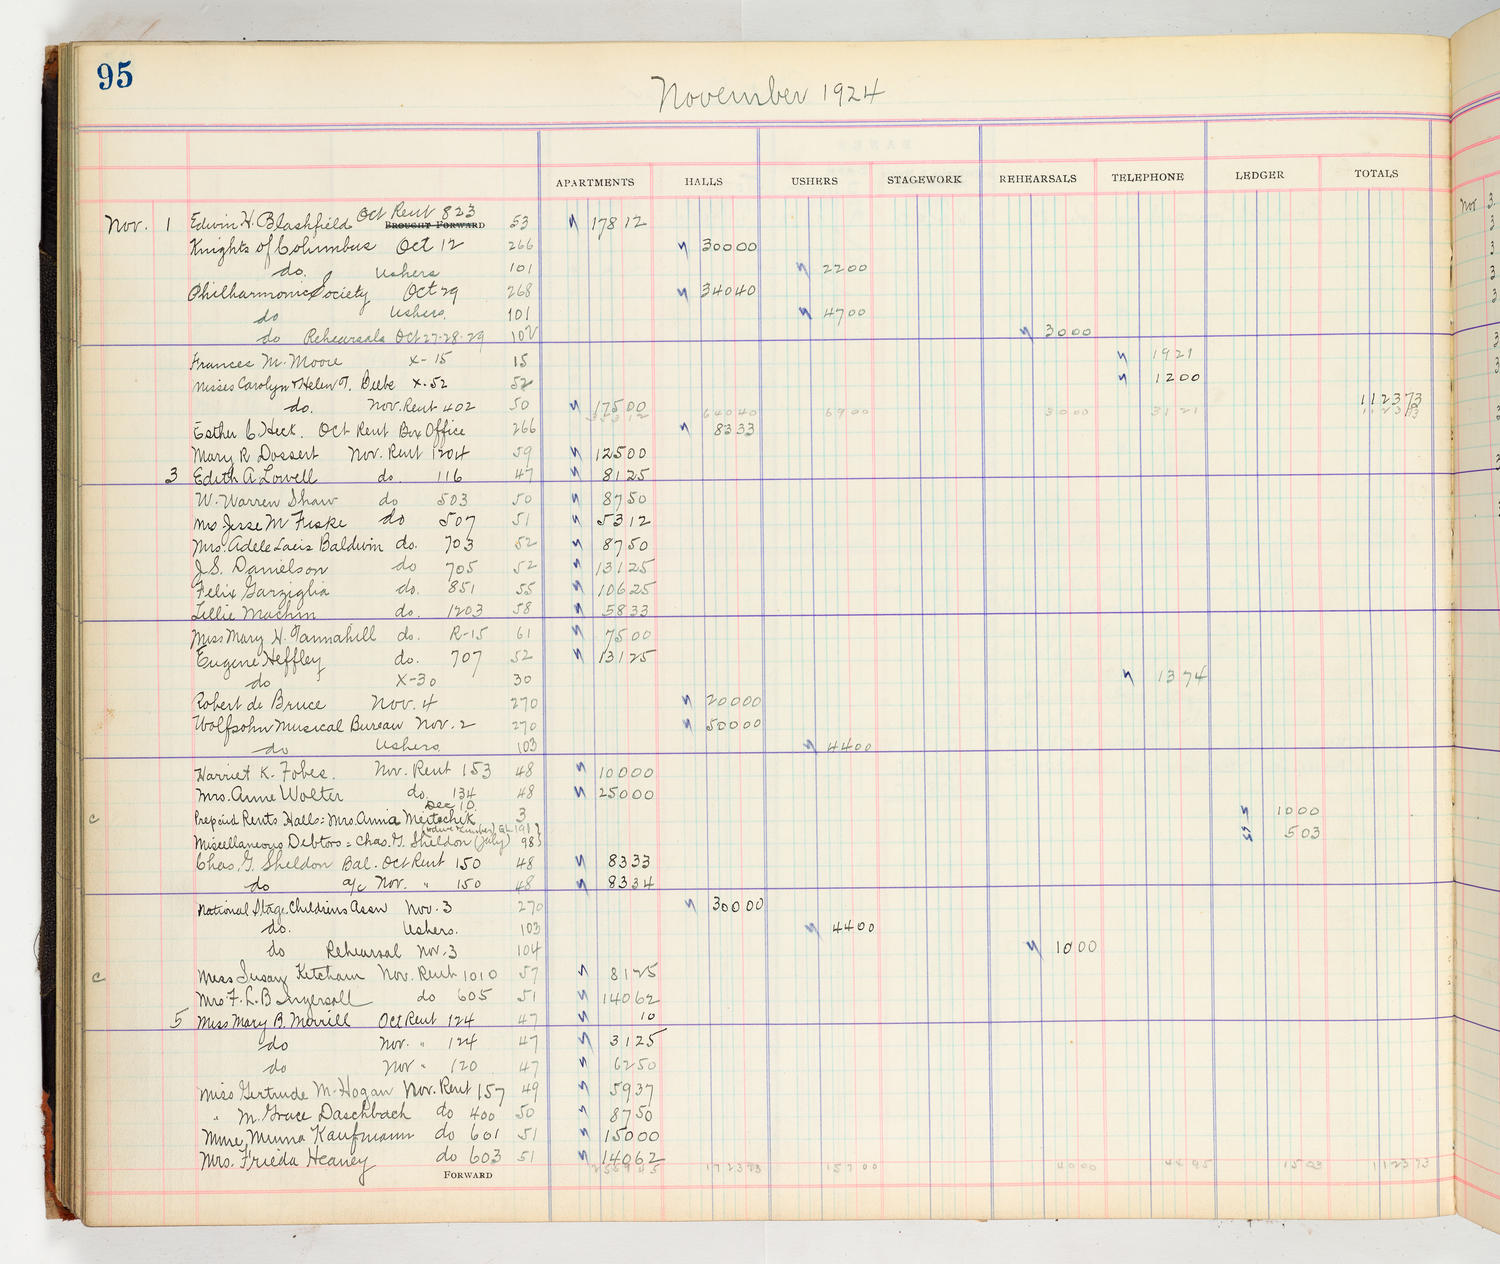 95
November 1924
APARTMENTS HALLS USHERS STAGEWORK REHEARSALS TELEPHONE LEDGER TOTALS
Nov. 1 Edwin H. Blashfield Oct Rent 823 53 178 12
BROUGHT FORWARD
Knights of Columbus Oct 12 266 300 00
do. Ushers 101 22 00
Philharmonic Society Oct 29 268 340 40
do Ushers. 101 47 00
do Rehearsals Oct 27-28-29 102 30 00
Frances M. Moore X-15 15 19 21
Misses Carolyn & Helen T. Beebe X-52 52 12 00
do. Nov. Rent 402 50 175 00 1123 73
353 12 640 40 69 00 30 00 31 21 1123 73
Esther C Heck. Oct Rent Box Office 266 83 33
Mary R Dossert Nov. Rent 1204 59 125 00
3 Edith A Lowell do 116 47 81 25
W. Warren Shaw do 503 50 87 50
Mrs Jesse M Fuske do 507 51 53 12
Mrs. Adele Laeis Baldwin do. 703 52 87 50
J.S. Danielson do 705 52 131 25
Felix Garziglia do. 851 55 106 25
Lillie Machin do. 1203 58 58 33
Miss Mary H. Tannahill do. R-15 61 75 00
Eugene Heffley do. 707 52 131 25
do X-30 30 13 74
Robert de Bruce Nov. 4 270 200 00
Wolfsohn Musical Bureau Nov. 2 270 500 00
do Ushers 103 44 00
Harriet K. Fobes. Nov. Rent 153 48 100 00
Mrs. Anne Wolter do 134 48 250 00
Dec 10
c Prepaid Rents Halls: Mrs. Anna Meitschik 3 10 00
Miscellaneous Debtors = Chas. G. Sheldon (July) 98 5 03
Chas. G. Sheldon Bal. Oct Rent 150 48 83 33
do a/c Nov. " 150 48 83 34
National Stage Childrens Assn Nov. 3 270 300 00
do. Ushers. 103 44 00
do Rehearsal Nov. 3 104 10 00
c Miss Susan Ketcham Nov. Rent 1010 57 81 25
Mrs F. L. B Ingersoll do 605 51 140 62
5 Miss Mary B. Merrill Oct Rent 124 47 10
do Nov. " 124 47 31 25
do Nov " 120 47 62 50
Miss Gertrude M. Hogan Nov. Rent 157 49 59 37
" M. Grace Daschbach do 400 50 87 50
Mme. Minna Kaufmann do 601 51 150 00
Mrs. Frieda Heaney do 603 51 140 62
FORWARD 2559 45 1723 73 157 00 40 00 44 95 15 03 1123 73